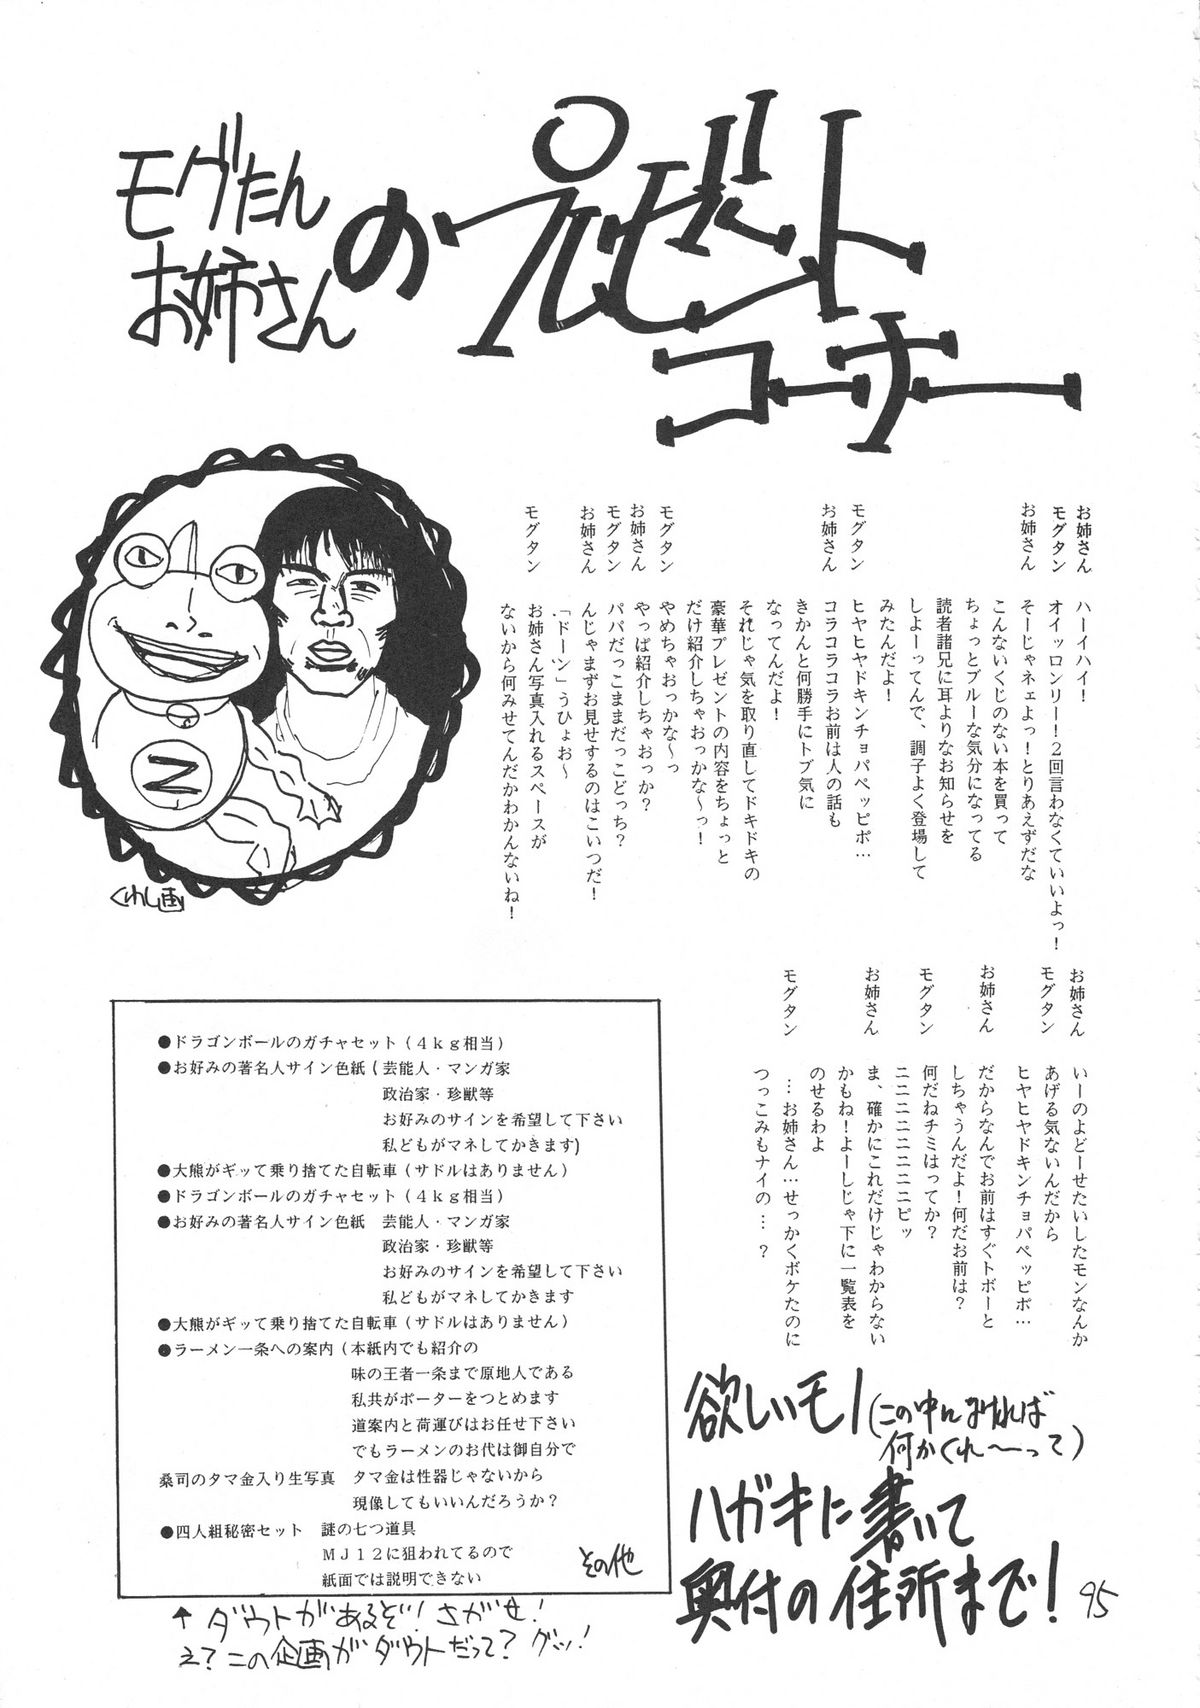 モグたん
お姉さん
の
プレゼント
コーナー
お姉さん　ハーイハイ！
モグタン　オイッロンリー！２回言わなくていいよっ！
お姉さん　そーじゃネェよっ！とりあえずだな
こんないくじのない本を買って
ちょっとブルーな気分になってる
読者諸兄に耳よりなお知らせを
しよーってんで、調子よく登場して
みたんだよ！
モグタン　ヒヤヒヤドキンチョパペッピポ…
お姉さん　コラコラコラお前は人の話も
きかんと何勝手にトブ気に
なってんだよ！
それじゃ気を取り直してドキドキの
豪華プレゼントの内容をちょっと
だけ紹介しちゃおっかな～っ！
モグタン　やめちゃおっかな～っ
お姉さん　やっぱ紹介しちゃおっか？
モグタン　パパだっこままだっこどっち？
お姉さん　んじゃまずお見せするのはこいつだ！
「ドーン」うひょお～
モグタン　お姉さん写真入れるスペースが
ないから何みせてんだかわかんないね！
くわし画
お姉さん　いーのよどーせたいしたモンなんか
あげる気ないんだから
モグタン　ヒヤヒヤドキンチョパペッピポ…
お姉さん　だからなんでお前はすぐトボーと
しちゃうんだよ！何だお前は？
モグタン　何だねチミはってか？
ニニニニニニニニピッ
お姉さん　ま、確かにこれだけじゃわからない
かもね！よーしじゃ下に一覧表を
のせるわよ
モグタン　…お姉さん…せっかくボケたのに
つっこみもナイの…？
●ドラゴンボールのガチャセット（４ｋｇ相当）
●お好みの著名人サイン色紙（芸能人・マンガ家
政治家・珍獣等
お好みのサインを希望して下さい
私どもがマネしてかきます）
●大熊がギッて乗り捨てた自転車（サドルはありません）
●ドラゴンボールのガチャセット（４ｋｇ相当）
●お好みの著名人サイン色紙　芸能人・マンガ家
政治家・珍獣等
お好みのサインを希望して下さい
私どもがマネしてかきます
●大熊がギッて乗り捨てた自転車（サドルはありません）
●ラーメン一条への案内（本紙内でも紹介の
味の王者一条まで原地人である
私共がポーターをつとめます
道案内と荷運びはお任せ下さい
でもラーメンのお代は御自分で
桑司のタマ金入り生写真　タマ金は性器じゃないから
現像してもいいんだろうか？
●四人組秘密セット　謎の七つ道具
ＭＪ１２に狙われてるので
紙面では説明できない
その他
↑ダウトがあるぞ！さがせ！
え？この企画がダウトだって？グッ！
欲しいモノ（この中になければ
何かくれ～って）
ハガキに書いて
奥付の住所まで！
95